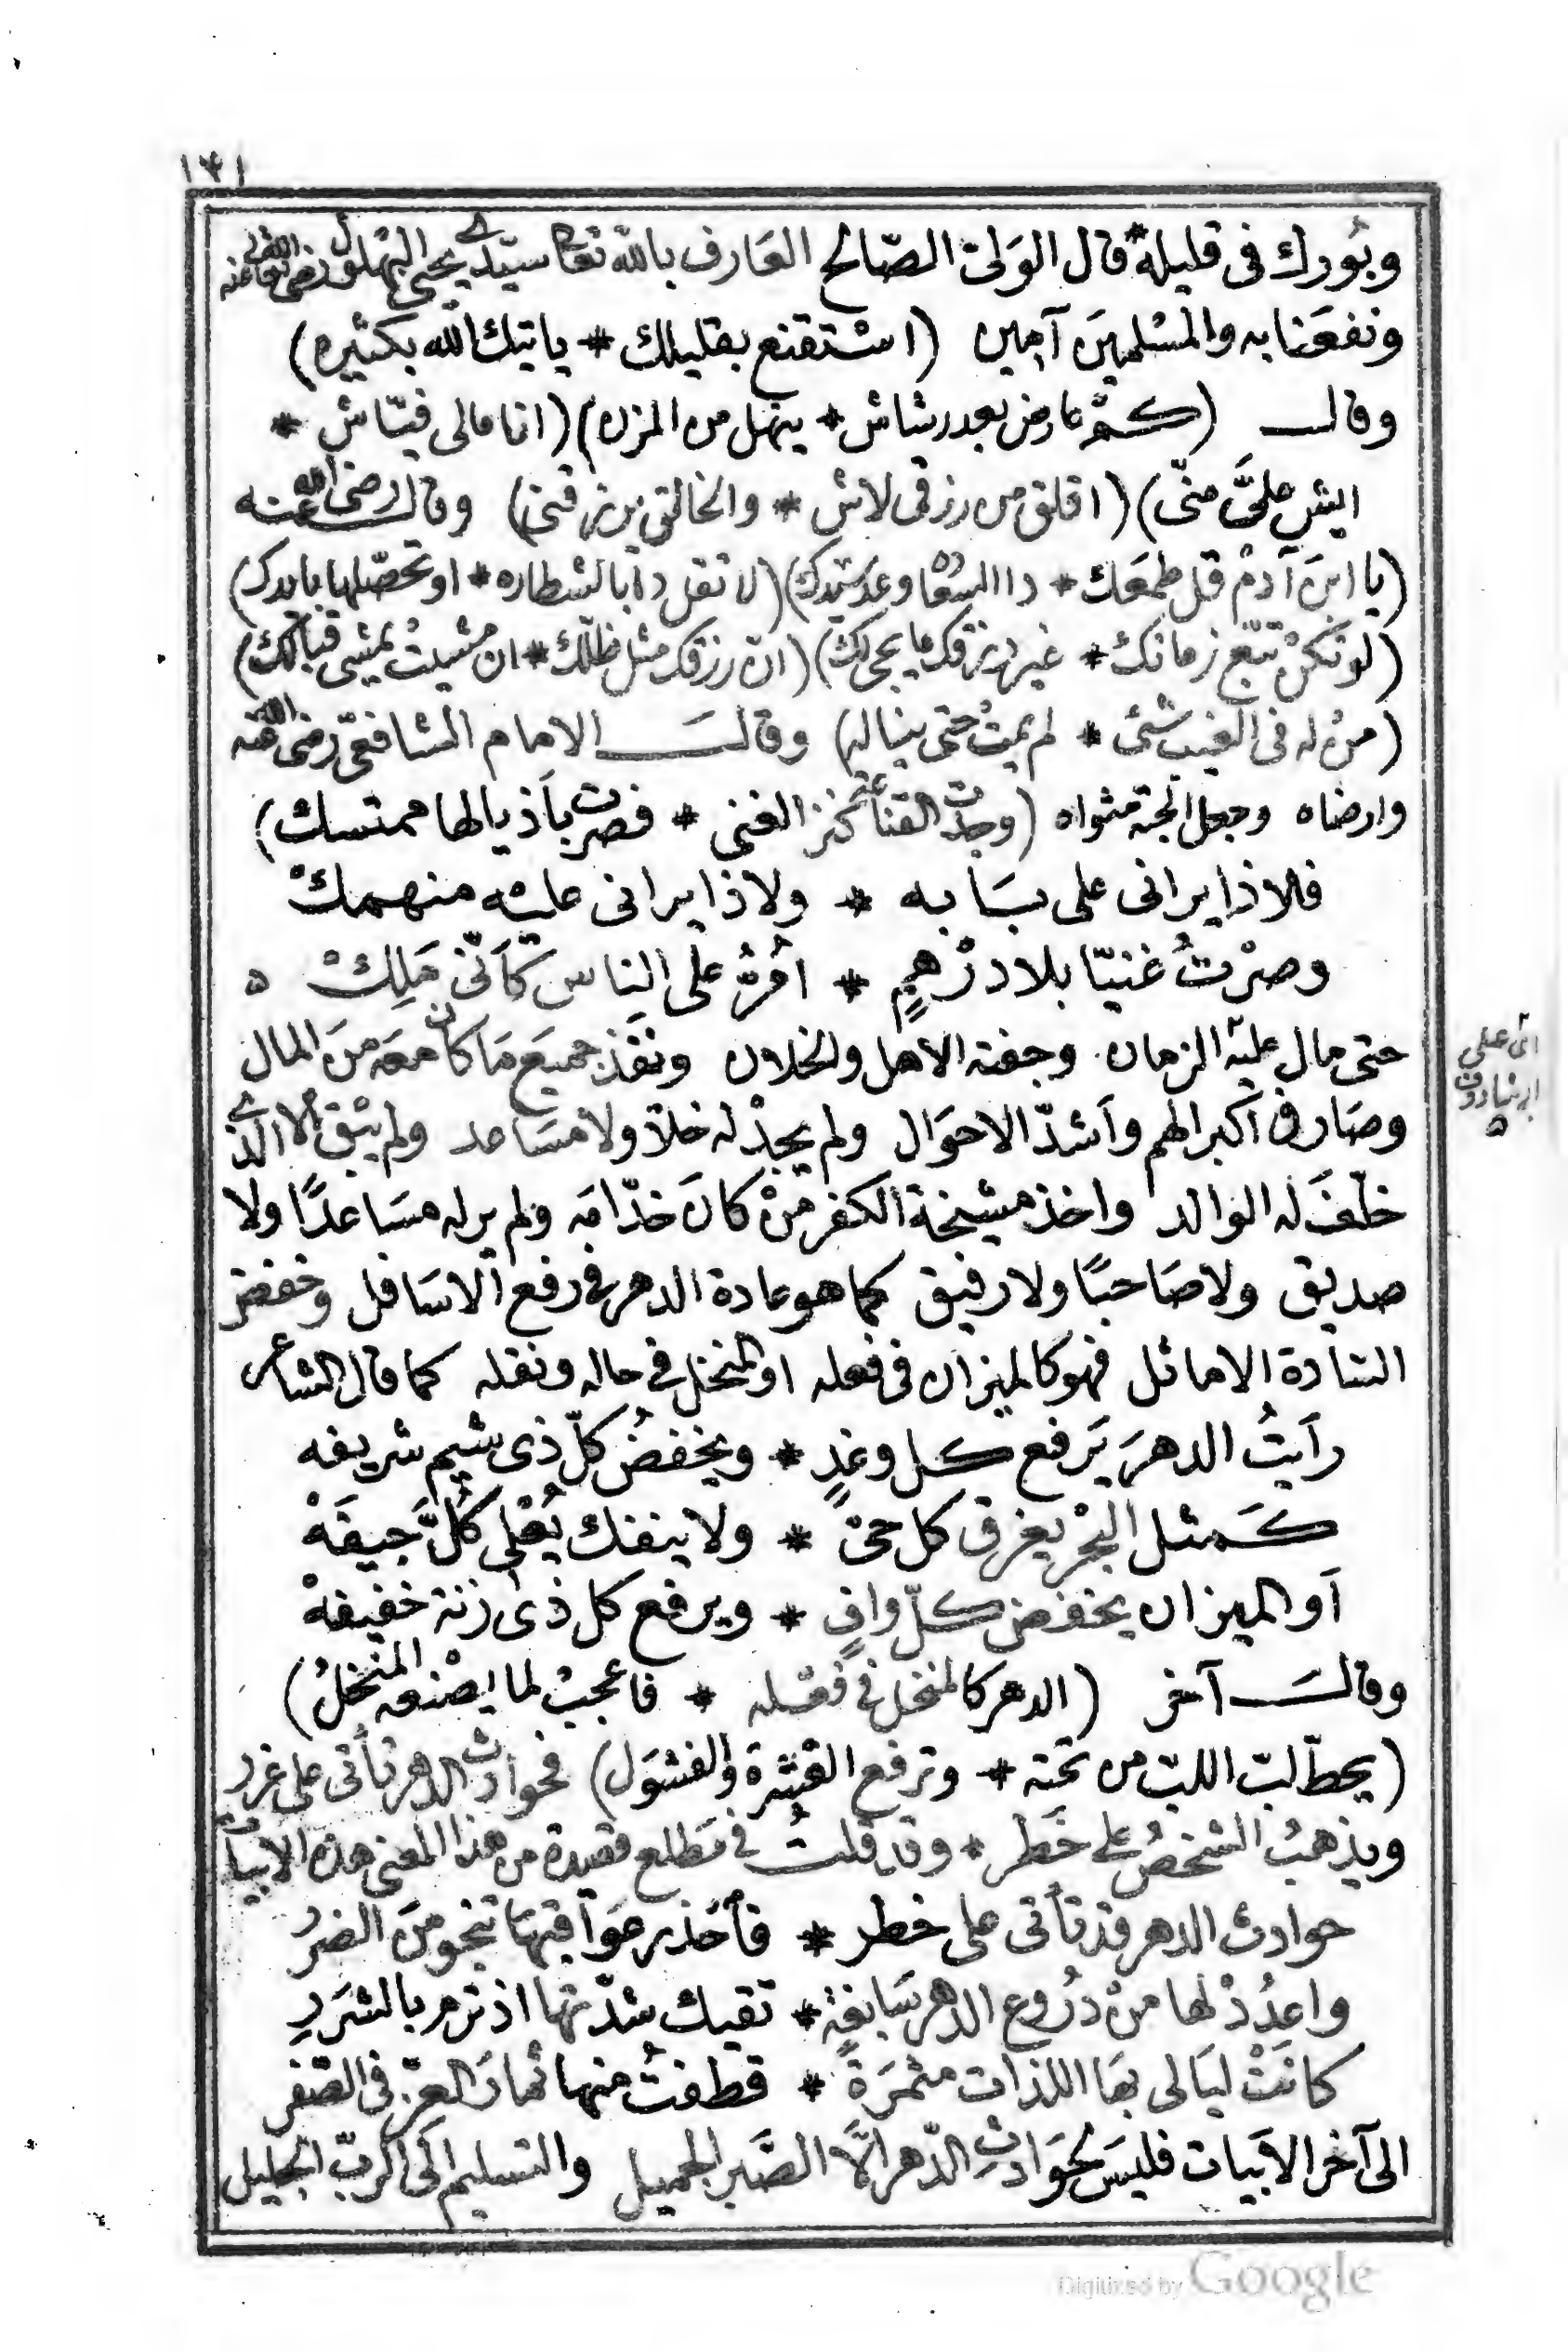 ١٤١
وبُورك فى قليله * قال الوَلىّ الصّالح العَارف بالله تعا سيّدى يحيى البُهلول رضى الله تعا عنه
ونفعَنا به والمسْلمينَ آمِين (استقنع بقليلك * ياتيك الله بكثيره)
وقال (كم عارض بعد رشاش * ينهل من المزن) (انا مالى فيّاش *
ايش علىَّ منّى) (اقلق من رزقى لاش * والخالق يرزقنى) وقال رضى الله عنه
(يا ابنَ آدمْ قل طمعَك * (لا تقل دا بالشطاره * او تحصّلها بايدك)
(لو تكنْ تتبع زمانك * غير رزقك ما يجى لك) (انّ رزقك مثل ظلّك * ان مشيتْ يمشى قبالك)
(منْ له فى الغيب شئ * لم يمتْ حتى يناله) وقالَ الامام الشافعى رضى الله عنه
وارضاه وجعل الجنة مثواه (وجدت القناعة كنز الغنى * فصرت بأذيالها ممتسك)
فلا ذا يرانى على بَابه * ولا ذا يرانى عليْه منهمكْ
وصرْتُ غنيّا بلا درْهمٍ * امُرُّ على الناس كأنّى مَلِكْ ٥
حتى مال عليْه الزمان وجفته الاهل والخلان ونفذ جميعَ مَا كان معَه منَ المال
اى على
ابى شادوف
٥
وصَار فى اكبر الهم وأشدّ الاحوَال ولم يجدْ له خلاّ ولا مسَاعد ولم يبْق الا الذى
خلّفَ له الوالد واخذ مشيخة الكفر منْ كانَ خدّامَه ولم ير له مسَاعدًا ولا
صديق ولا صَاحبًا ولا رفيق كما هو عادة الدهر فى رفع الاسَافل وخفض
السَادة الاماثل فهو كالميزان فى فعله او المنخل فى حاله ونقله كما قال الشاعر
رأيتُ الدهرَ يَرفع كل وغدٍ * ويخفضُ كلّ ذى شيم شريفه
كَمثل البحْر يغرق كل حىّ * ولا ينفك يُعْلى كُلَّ جيفَهْ
أو الميزان يخفض كلّ وافٍ * ويرفع كل ذى زنة خفيفهْ
وقالَ آخر (الدهر كالمنخل فى فعْله * فاعجبْ لما يصْنعه المنخلُ)
(يحطّ لبّ اللبّ من تحته * وترفع القشرة والفشوَل) فحوادث الدهر تأتى على غرر
ويذهبُ الشخصُ على خَطر * وقد قلتُ فى مَطلع قصيدة من هذا المعنى هذه الابيات
حوادث الدهر قدْ تأتى على خطر * فأحْذر عوَاقبهَا تنجو منَ الضرر
واعدُدْ لها منْ درُوع الدهر سَابغةً * تقيك شدّتها اذ ترم بالشرَرِ
كانَتْ ليَالى بهَا اللذات مثمرَةً * قطفتُ منها ثمارَ العزّ فى الصّفر
الى آخر الأبيات فليسَ لحوَادثِ الدّهر الَّا الصَّبر الجميل والتسليم الى الربّ الجليل
Digitized by Google